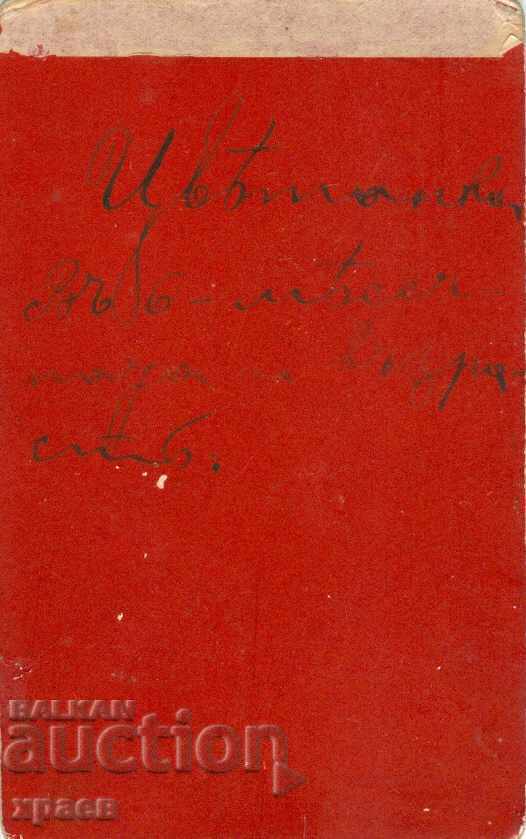 Цвѣтанка
въ 6-мѣсеч-
ната и възра-
стъ.
BALKAN
auction
храев